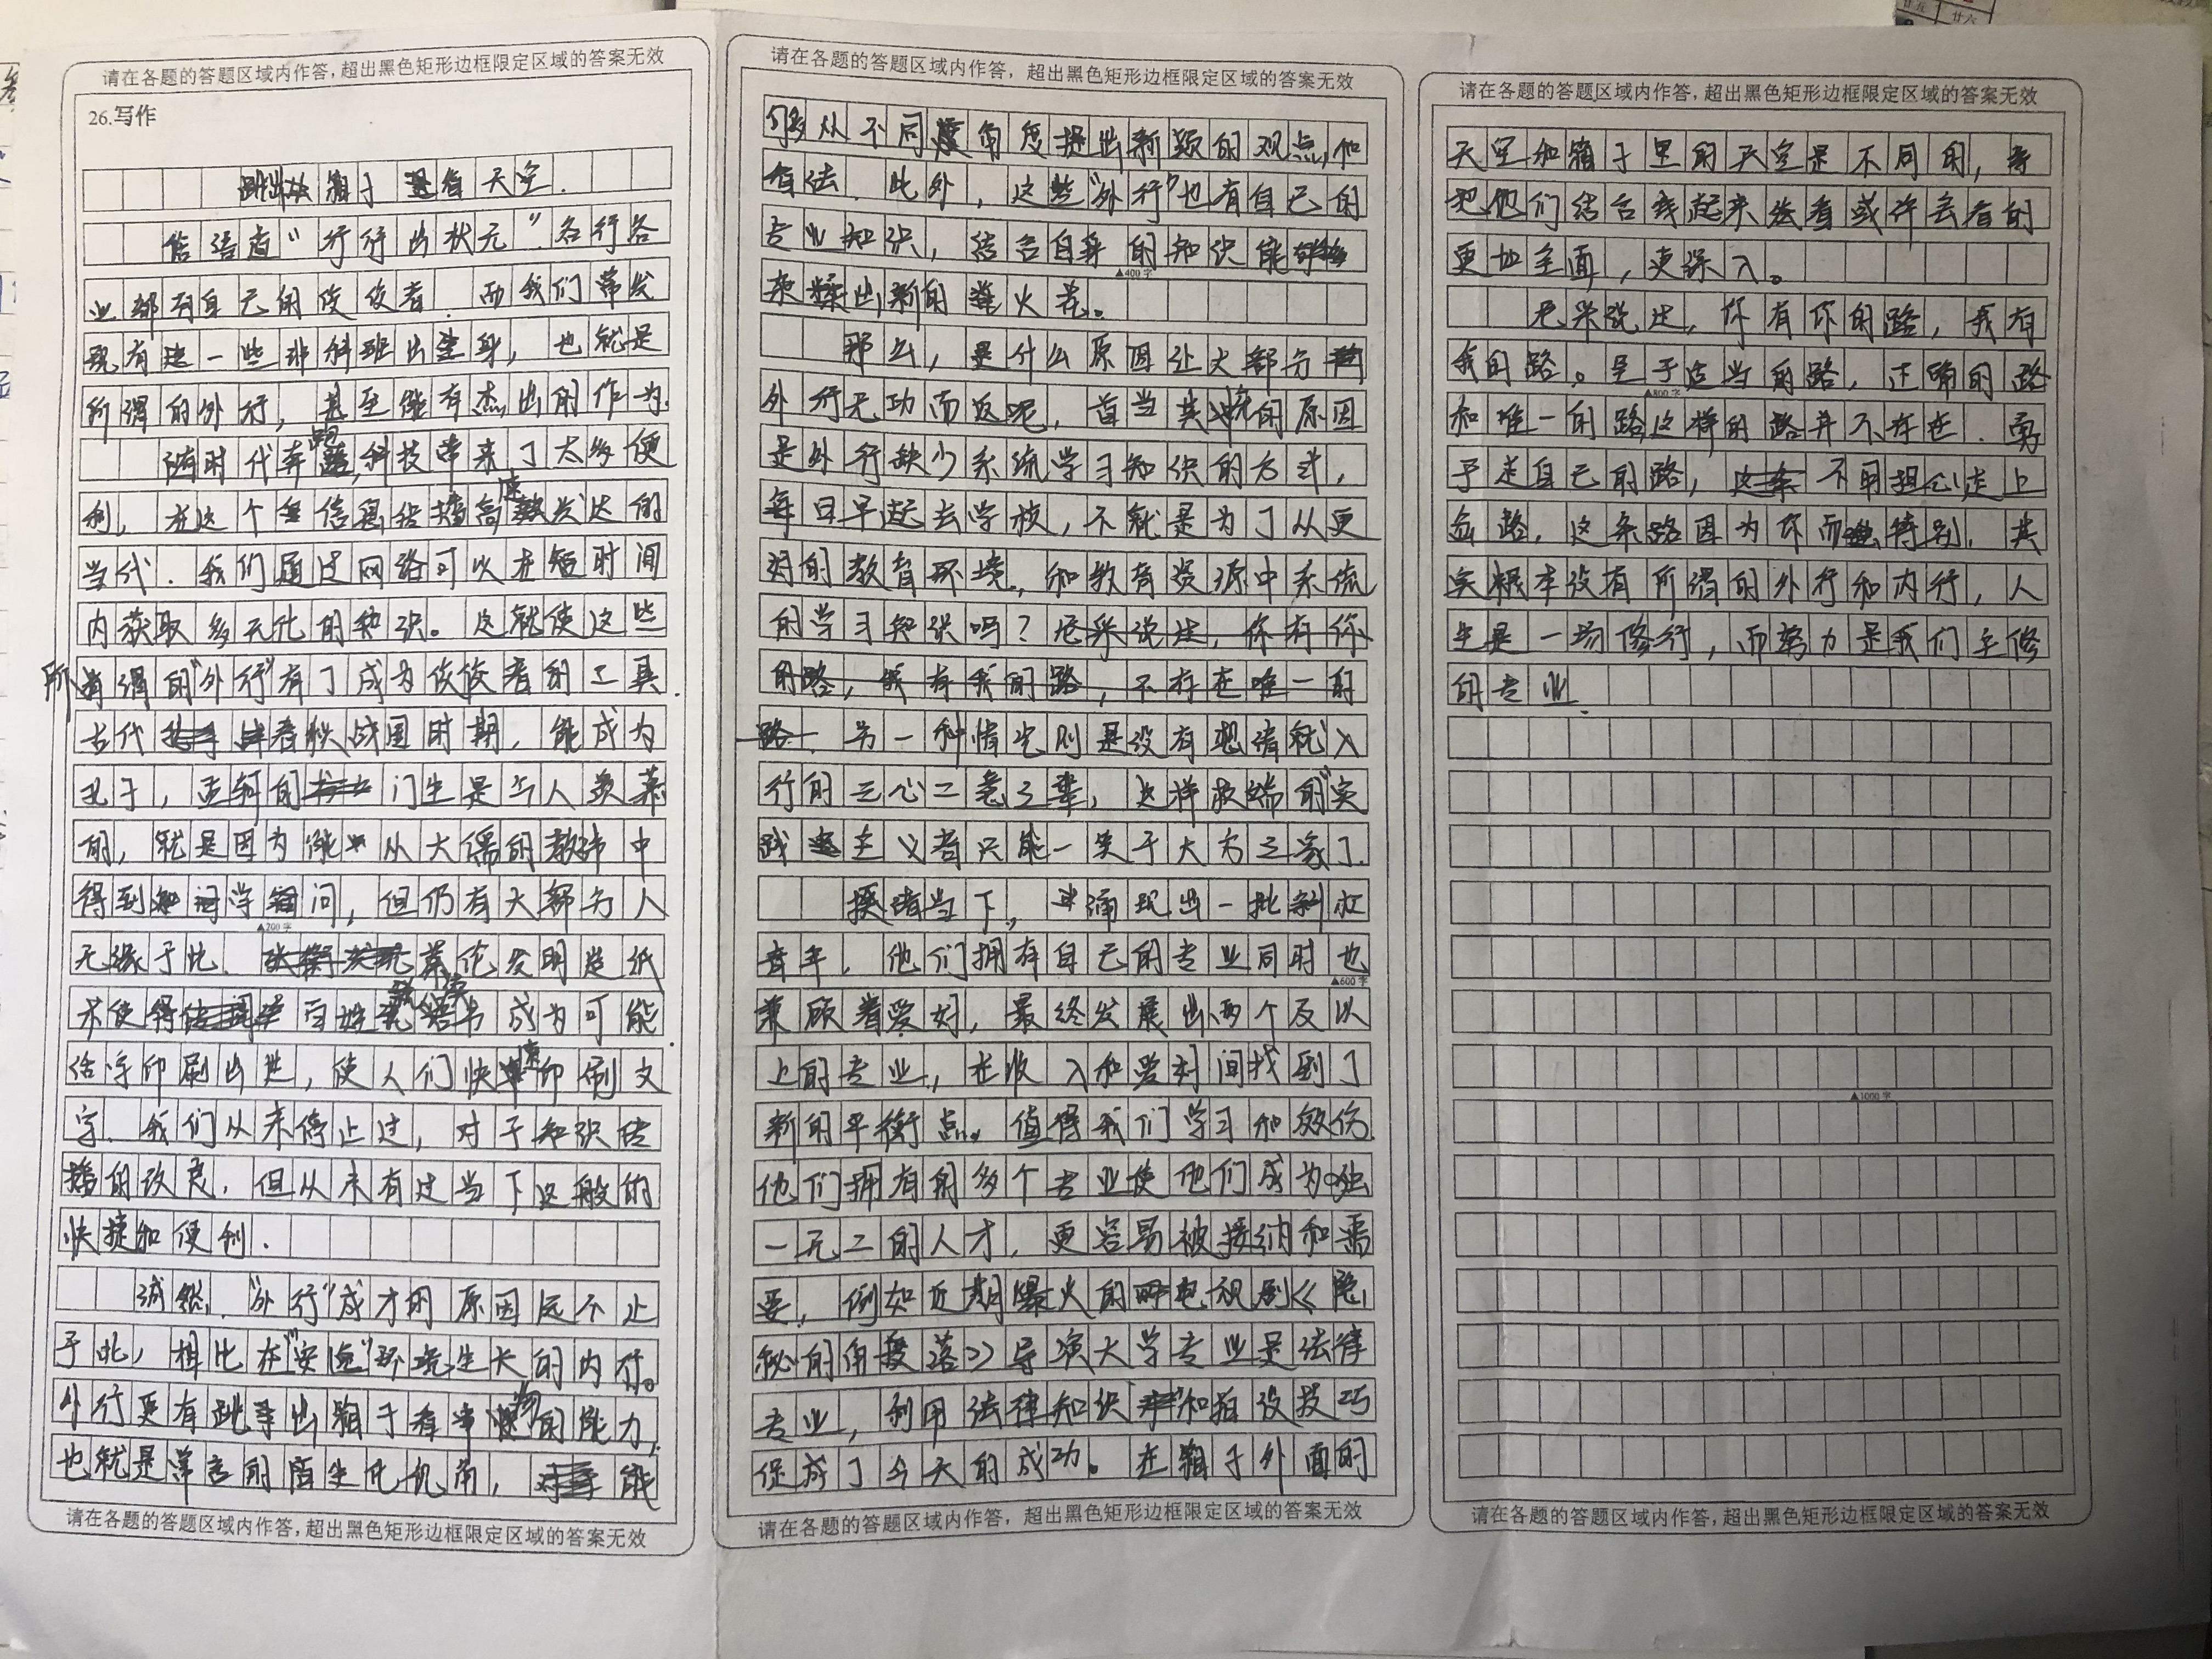 请在各题的答题区域内作答，超出黑色矩形边框限定区域的答案无效
26.写作
跳出箱子看天空.
俗语道“行行出状元”.各行各
业都有自己的佼佼者.而我们常发
现有这一些非科班出身，也就是
所谓的外行，甚至能有杰出的作为.
随时代奔跑,科技带来了太多便
利，在这个信息传播高速发达的
当代.我们通过网络可以在短时间
内获取多元化的知识。这就使这些
所谓的“外行”有了成为佼佼者的工具.
古代春秋战国时期，能成为
孔子，孟轲的门生是令人羡慕
的，就是因为能从大儒的教诲中
得到学问，但仍有大部分人
▲200字
无缘于此.蔡伦发明造纸
术使得百姓读书成为可能.
活字印刷出世，使人们快速印刷文
字.我们从未停止过，对于知识传
播的改良，但从未有过当下这般的
快捷和便利.
诚然，“外行”成才的原因远不止
于此，相比在“安逸”环境生长的内行。
外行更有跳出箱子看事物的能力,
也就是常言的陌生化视角，能
请在各题的答题区域内作答，超出黑色矩形边框限定区域的答案无效
请在各题的答题区域内作答，超出黑色矩形边框限定区域的答案无效
够从不同角度提出新颖的观点,和
看法.此外，这些“外行”也有自己的
专业知识，结合自身的知识能够
▲400字
杂糅出新的火花。
那么，是什么原因让大部分
外行无功而返呢，首当其冲的原因
是外行缺少系统学习知识的方式，
每日早起去学校，不就是为了从更
好的教育环境,和教育资源中系统
的学习知识吗？老采说过，你有你
的路，我有我的路，不存在唯一的
路.另一种情况则是没有想清就入
行的三心二意之辈，这样极端的“实
践主义者只能一笑于大方之家了.
摸清当下，涌现出一批斜杠
青年，他们拥有自己的专业同时也
▲600字
兼顾着爱好，最终发展出两个及以
上的专业，在收入和爱好间找到了
新的平衡点。值得我们学习和效仿.
他们拥有的多个专业使他们成为独
一无二的人才，更容易被接纳和需
要，例如近期爆火的电视剧《隐
秘的角落》导演大学专业是法律
专业，利用法律知识和拍设技巧
促成了今天的成功。在箱子外面的
请在各题的答题区域内作答，超出黑色矩形边框限定区域的答案无效
请在各题的答题区域内作答，超出黑色矩形边框限定区域的答案无效
天空和箱子里的天空是不同的，
把他们结合起来去看或许会看的
更加全面，更深入。
尼采说过，你有你的路，我有
我的路。至于适当的路，正确的路
▲800字
和唯一的路这样的路并不存在.勇
于走自己的路，不用担心走上
岔路，这条路因为你而特别，其
实根本没有所谓的外行和内行，人
生是一场修行，而努力是我们主修
的专业.
▲1000字
请在各题的答题区域内作答，超出黑色矩形边框限定区域的答案无效